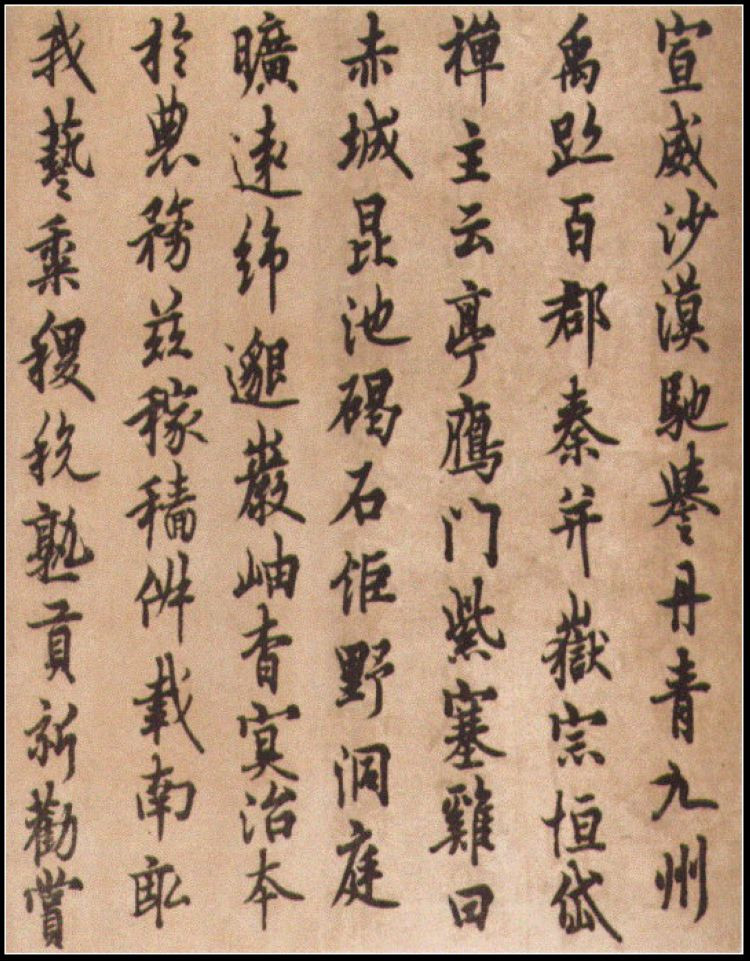 宣威沙漠馳譽丹青九州
禹跡百郡秦并嶽宗恒岱
禪主云亭鴈门紫塞雞田
赤城昆池碣石鉅野洞庭
曠遠綿邈巖岫杳冥治本
於農務茲稼穡俶載南畝
我藝黍稷稅熟貢新勸賞